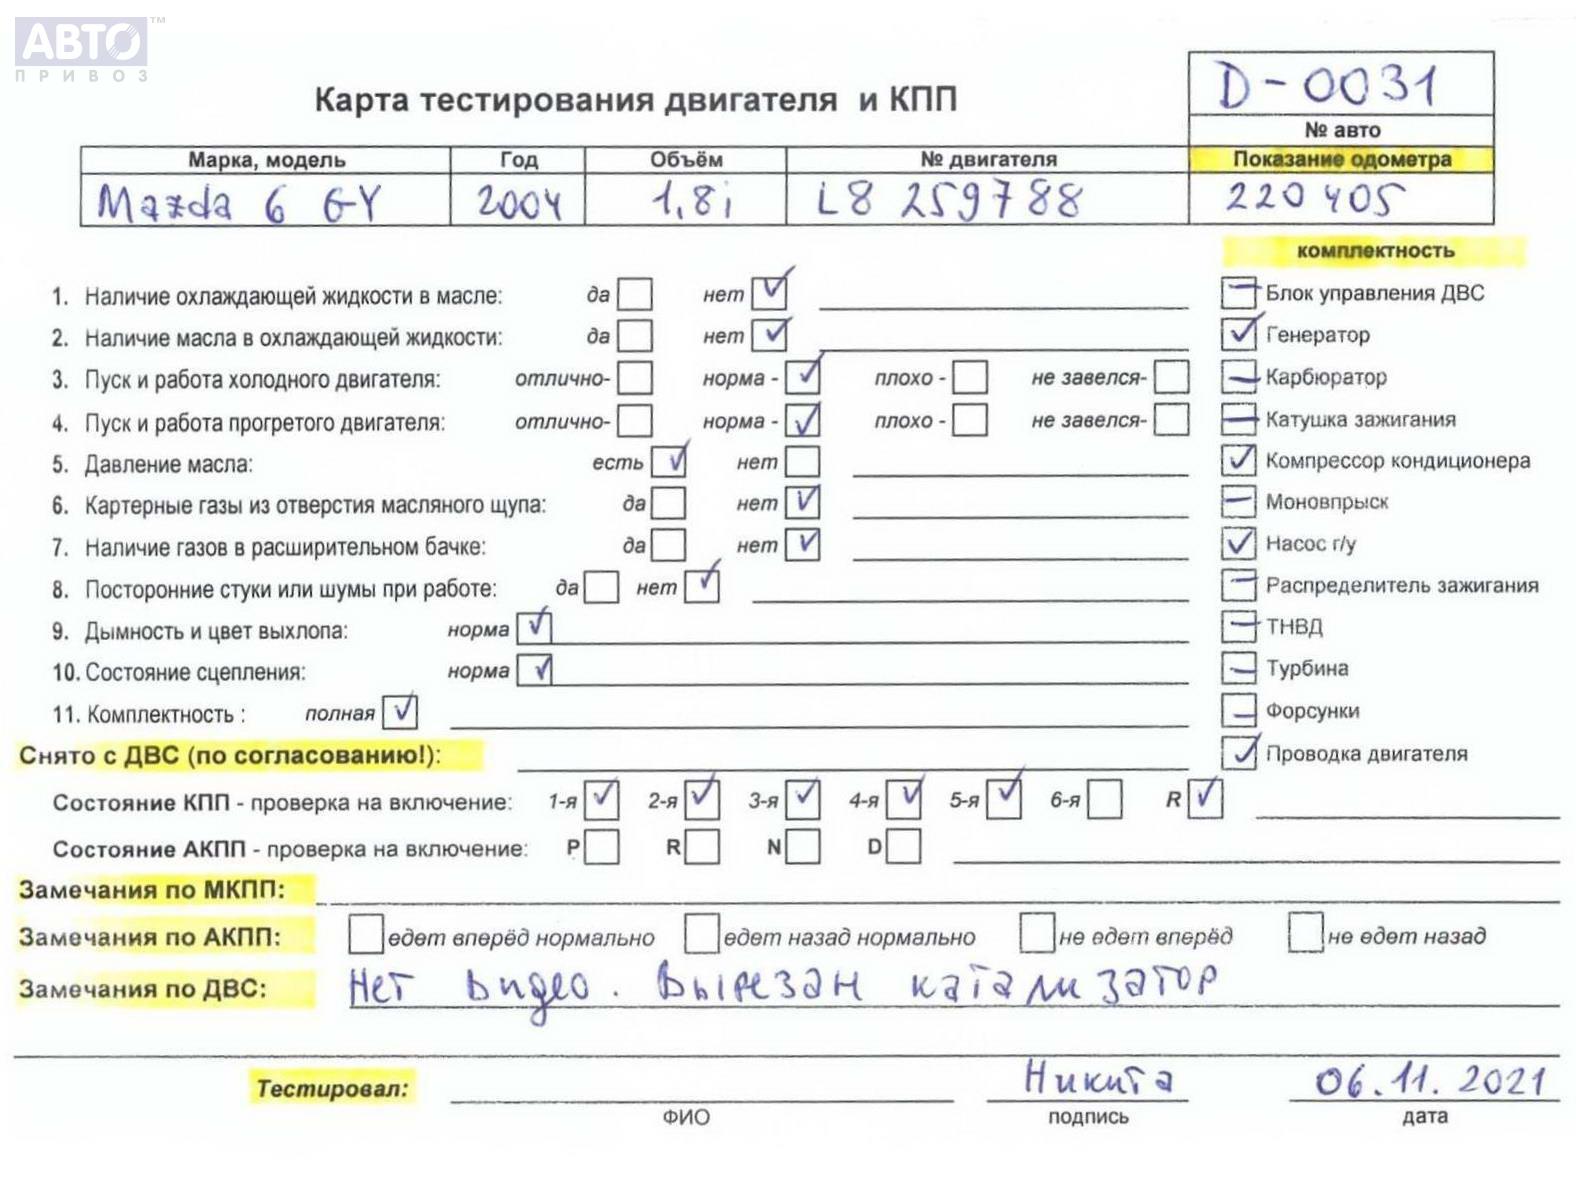 АВТО™
ПРИВОЗ
D-0031
Карта тестирования двигателя и КПП
№ авто
Марка, модель Год Объём № двигателя Показание одометра
Mazda 6 GY 2004 1,8i L8 259788 220 405
комплектность
1. Наличие охлаждающей жидкости в масле: да нет ✓
Блок управления ДВС
2. Наличие масла в охлаждающей жидкости: да нет ✓
✓ Генератор
3. Пуск и работа холодного двигателя: отлично- норма - ✓ плохо - не завелся-
Карбюратор
4. Пуск и работа прогретого двигателя: отлично- норма - ✓ плохо - не завелся-
Катушка зажигания
5. Давление масла: есть ✓ нет
✓ Компрессор кондиционера
6. Картерные газы из отверстия масляного щупа: да нет ✓
Моновпрыск
7. Наличие газов в расширительном бачке: да нет ✓
✓ Насос г/у
8. Посторонние стуки или шумы при работе: да нет ✓
Распределитель зажигания
9. Дымность и цвет выхлопа: норма ✓
ТНВД
10. Состояние сцепления: норма ✓
Турбина
11. Комплектность : полная ✓
Форсунки
Снято с ДВС (по согласованию!):
✓ Проводка двигателя
Состояние КПП - проверка на включение: 1-я ✓ 2-я ✓ 3-я ✓ 4-я ✓ 5-я ✓ 6-я R ✓
Состояние АКПП - проверка на включение: P R N D
Замечания по МКПП:
Замечания по АКПП: едет вперёд нормально едет назад нормально не едет вперёд не едет назад
Замечания по ДВС: Нет видео. Вырезан катализатор
Тестировал: Никита 06.11.2021
ФИО подпись дата